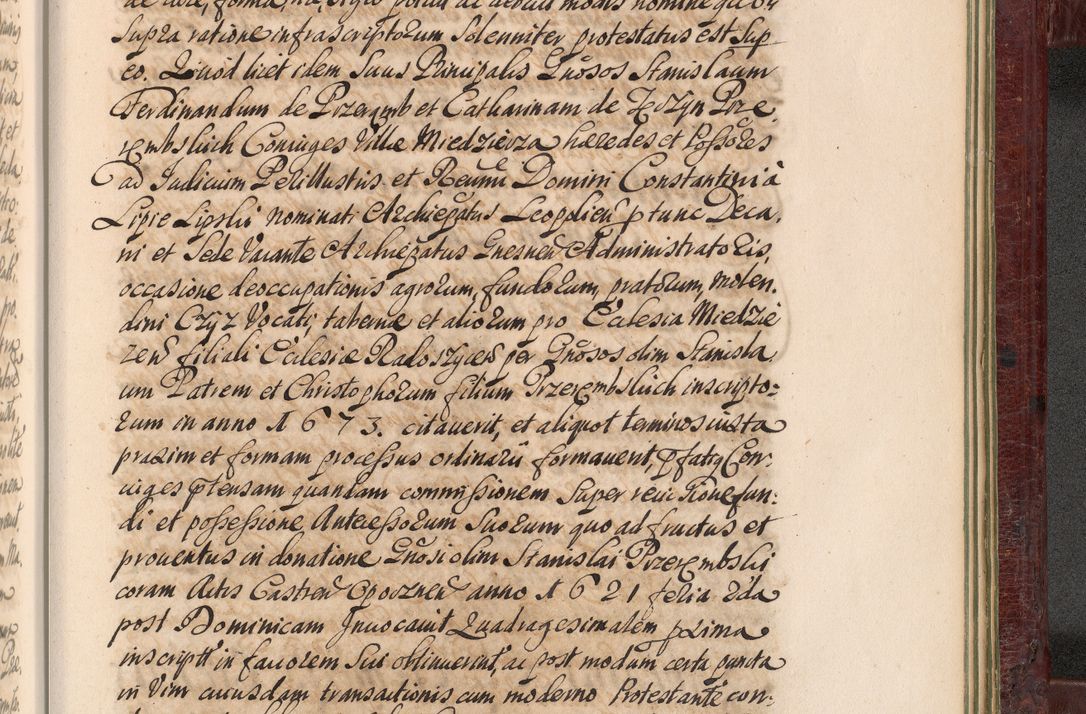 supra ratione infrascriptorum Solenniter protestatus est Sup
eo. Quod licet idem Suus Principalis Gnosos Stanislaum
Ferdinandum de Przeremb et Catharinam de Prze
rembskich Coniuges Villæ Miedzierza hæredes et Possores
ad Iudicium Perillustris et Reumi Domini Constantini à
Lipie Lipski nominati Archiepatus Leopolien p tunc Deca
ni et Sede Vacante Archiepatus Gnesnen Administratoris,
occasione deoccupationis agrorum, fundorum, pratorum, molen
dini Czyz Vocati, tabernæ et aliorum pro Ecclesia Miedzie
rzen filiali Ecclesiæ Radoszycen per Gnosos olim Stanisla
um Patrem et Christophorum filium Przerembskich inscripto=
rum in anno 1673. citaverit, et aliquot terminos iuxta
praxim et formam processus ordinarii formaverit, Con
iuges ptensam quandam commissionem Super fun:
di et possessione Antecessorum Suorum quo ad fructus et
proventus in donatione Gnosi olim Stanislai Przerembski
coram Actis Castren Opocznen anno 1621 feria 2da
post Dominicam Invocavit Quadragesimalem prima
inscript in favorem Sui obtinuerint, ac post modum certa puncta
in Vim cuiusdam transactionis cum moderno Protestante con=